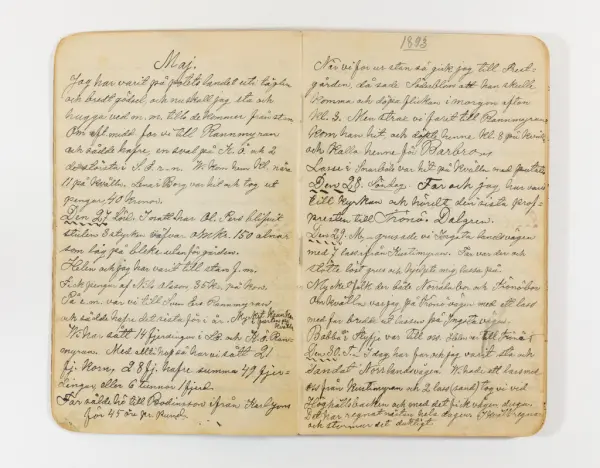 Maj.
Jag har varit på potetslandet ute i täglen
och bredt gödsel, och nu skall jag sta och
hugga ved m. m. tills de kommer från stan
Om eft. midd. for vi till Rannmyran
och sådde hafre, en sval på N. Ö. och 2
i S. r. m. Vi kom hem kl. nära
11 på kvällen. Lena Borg var hit och tog ut
pengar, 40 kronor.
Den 27 Lörd. I natt har Ol. Pers blifvit
stulen 3 stycken väfvar. omkr. 150 alnar
som låg på bleke utanför gården.
Helén och jag har varit till stan f. m.
Fick pengar af Nils alsom 35 k. på korn.
På e. m. var vi till Rannmyran,
och sådde hafre det sista för i år.
Vi har sått 14 fjerdingar i S. Ö. och N. Ö. Ran-
myran. Med allt hop så har vi sått 21
fj. Korn, 28 fj. hafre summa 49 fjer-
dingar eller 6 tunnor 1 fjerd.
Far sålde hö till Bodinsson ifrån Karl Jons
för 45 öre pr. pund.
1893
När vi for ur stan så gick jag till Prest-
gården, då sade Söderblom att han skulle
komma och döpa flickan i morgon afton
kl. 3. Men strax vi farit till Rannmyran
kom han hit, och döpte henne kl 8 på kväll
och Kalla henne för Barbro.
Lasse i Snarbäs var hit på kvällen med potatis
Den 28. Söndag. Far och jag har varit
till kyrkan och hördt den sista prof-
presten till Trönö. Dalgren.
Den 29. M. grusade vi Ingsta landsvägen
med 7 lass ifrån Kustimyran. Far var der och
stötte löst grus och hjelpte mig lassa på.
Mycke folk der både Norrala bor och Trönö bor.
Om kvällen var jag på Trönö vägen med ett lass
med for bredd ut lassen på Ingsta vägen.
Babba i Styfje var till oss.
Den 30. T. I dag har far och jag varit sta och
Sandat i Norrlandsvägen. Vi hade ett lass med
oss från Kustimyran och 2 lass (sand) tog vi vid
Höghällbacken och med det fick vägen duga.
Det har regnat nästan hela dagen. I kväll regnar
och stormar det duktigt.